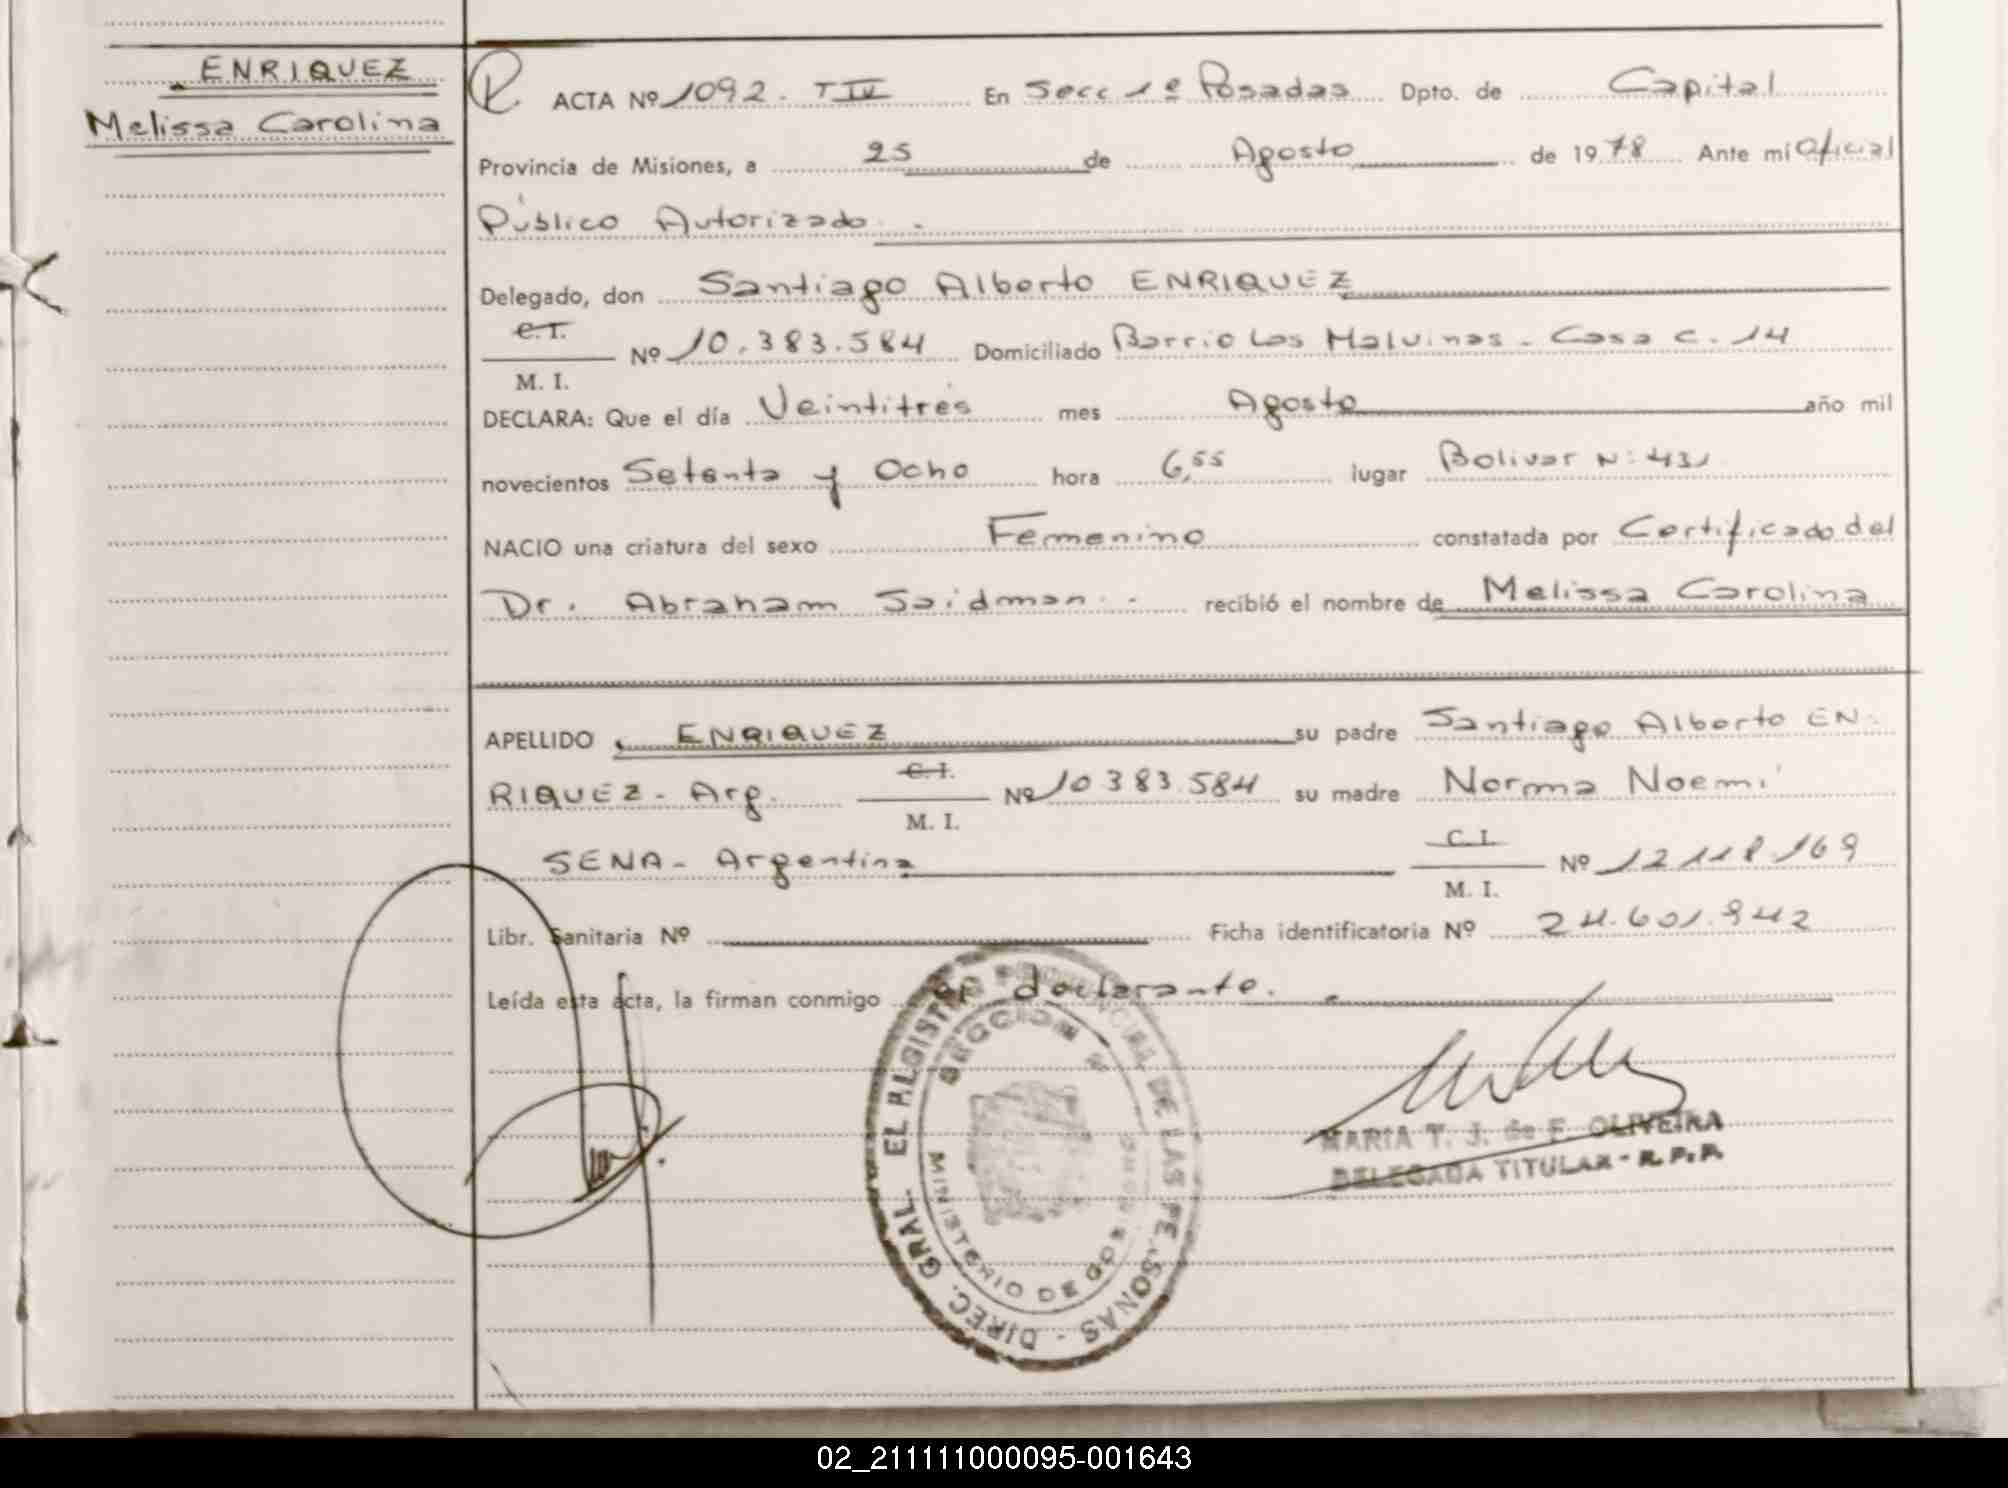 ENRIQUEZ
Melissa Carolina
ACTA Nº 1092. T IV En Secc 1º Posadas Dpto. de Capital
Provincia de Misiones, a 25 de Agosto de 1978 Ante mi Oficial
Público Autorizado.
Delegado, don Santiago Alberto ENRIQUEZ
C.I.
M. I. Nº 10.383.584 Domiciliado Barrio Las Malvinas - Casa C. 14
DECLARA: Que el día Veintitrés mes Agosto año mil
novecientos Setenta y Ocho hora 6,55 lugar Bolivar Nº 431
NACIO una criatura del sexo Femenino constatada por Certificado del
Dr. Abraham Saidman recibió el nombre de Melissa Carolina
APELLIDO ENRIQUEZ su padre Santiago Alberto EN-
RIQUEZ - Arg. C.I. M. I. Nº 10383.584 su madre Norma Noemí
SENA - Argentina C.I. M. I. Nº 12.118.169
Libr. Sanitaria Nº Ficha identificatoria Nº 24.601.942
Leída esta acta, la firman conmigo el declarante.
DIREC. GRAL. EL REGISTRO PROVINCIAL DE LAS PERSONAS -
SECCION 1ª
MINISTERIO DE GOBIERNO
MARIA T. J. de F. OLIVEIRA
DELEGADA TITULAR - R.P.P.
02_211111000095-001643